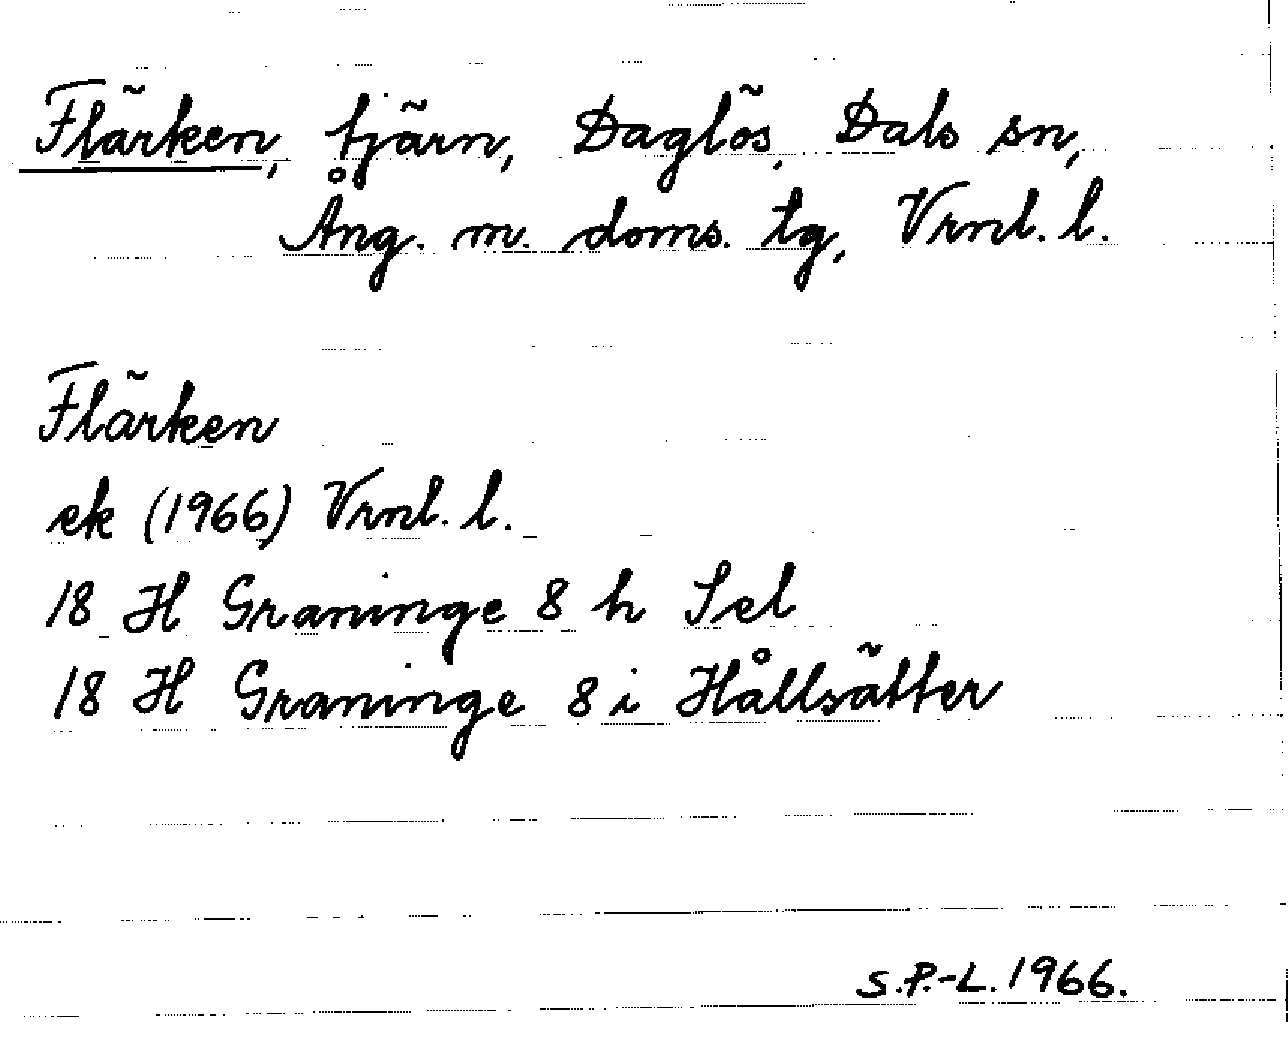 Flärken, tjärn, Daglös, Dals sn,
Ång. m. doms. tg, Vrnl. l.
Flärken
ek (1966) Vrnl. l.
18 H Graninge 8 h Sel
18 H Graninge 8 i Hållsätter
S.P.-L. 1966.